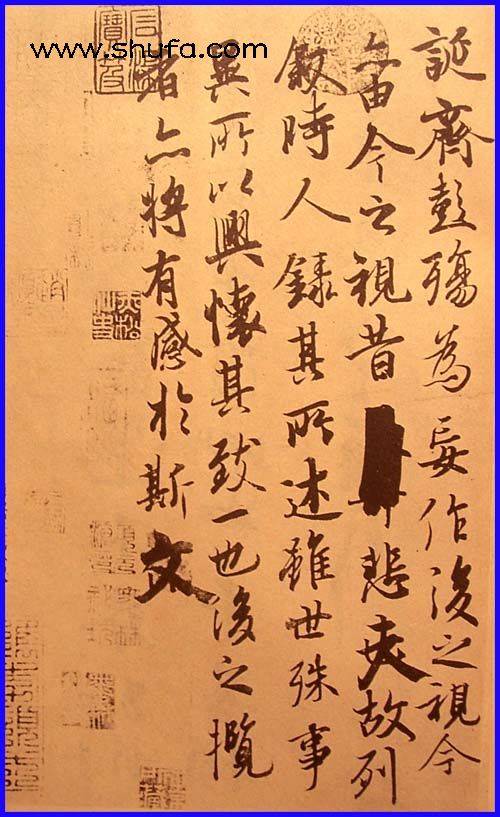 www.shufa.com
誕齊彭殤為妄作後之視今
亦由今之視昔悲夫故列
敘時人錄其所述雖世殊事
異所以興懷其致一也後之攬
者亦將有感於斯文